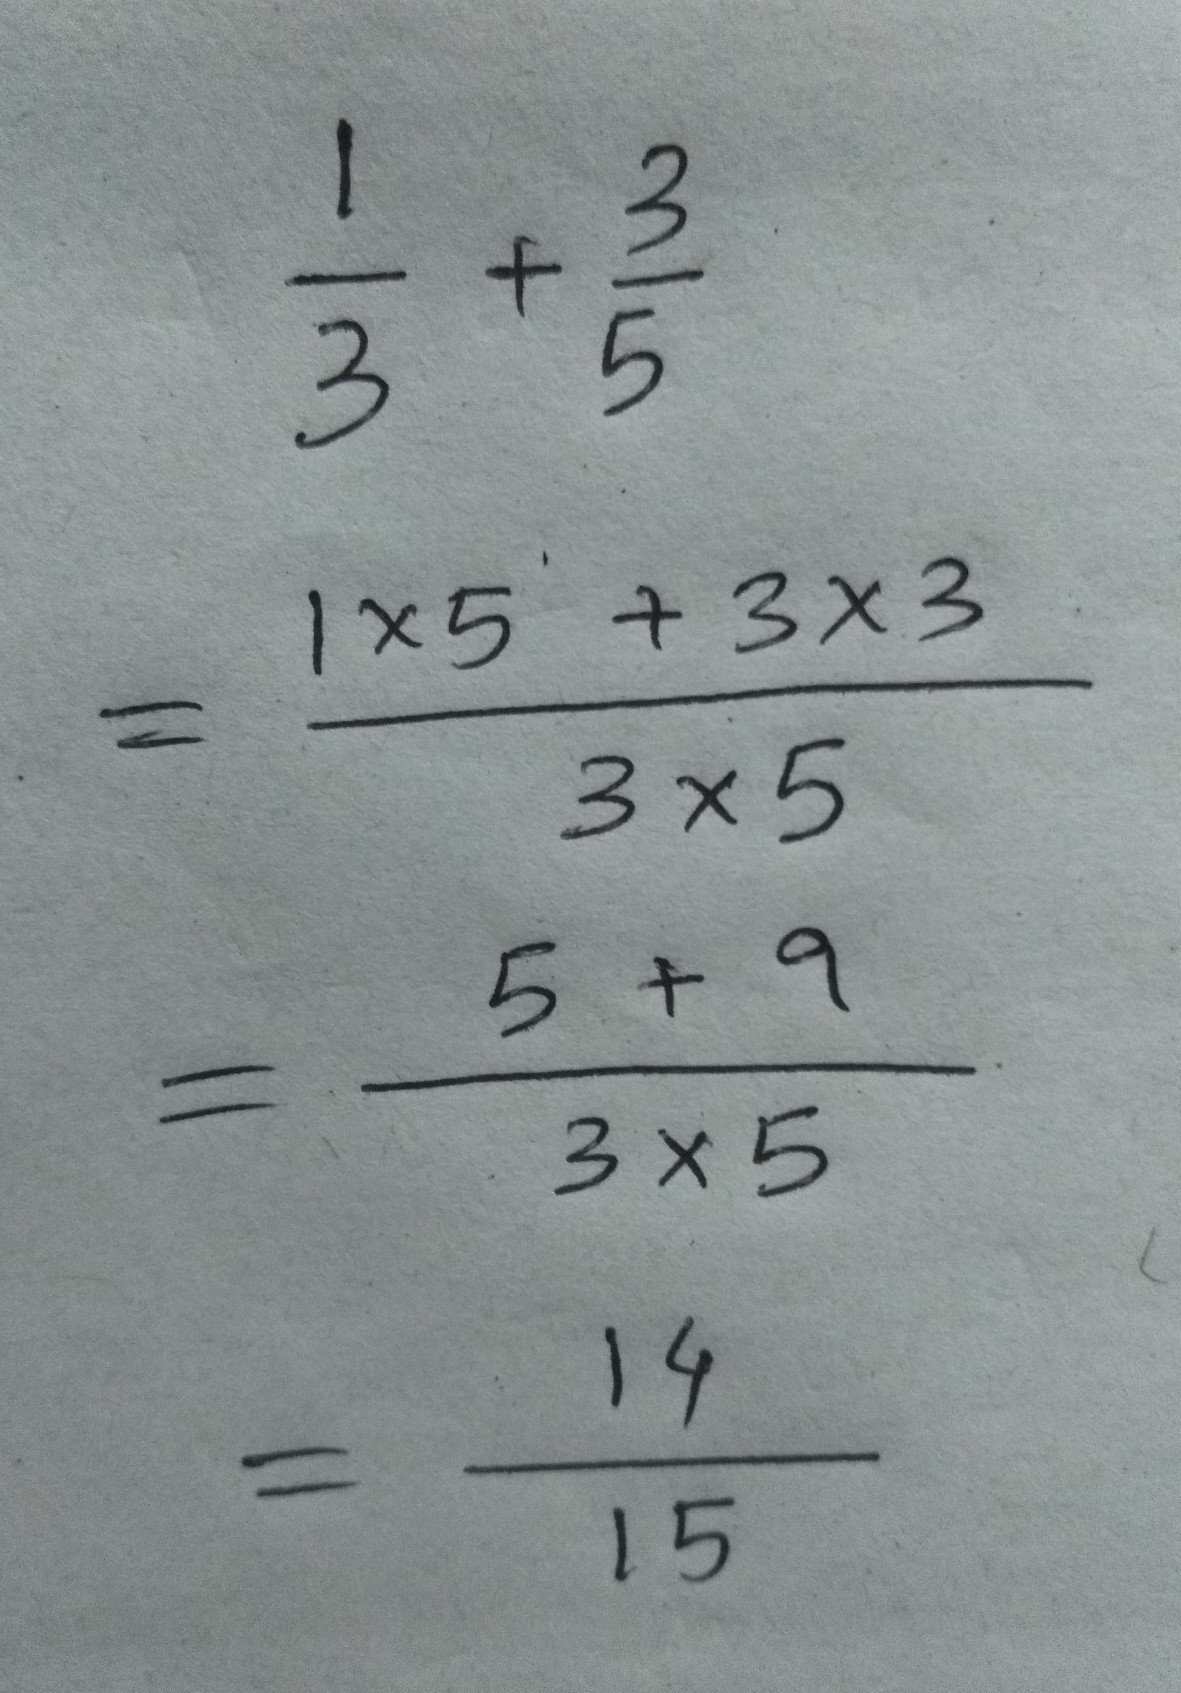 1/3 + 3/5
= (1×5 + 3×3)/(3×5)
= (5 + 9)/(3×5)
= 14/15